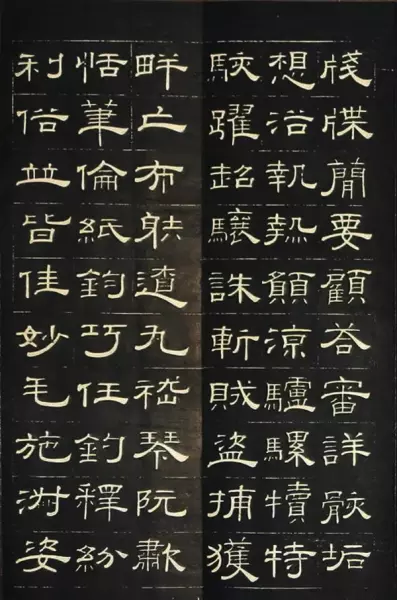 牋牒簡要顧荅審詳骸垢
想浴執熱願涼驢騾犢特
駭躍超驤誅斬賊盜捕獲
畔亡布射遼丸嵇琴阮嘯
恬筆倫紙鈞巧任釣釋紛
利俗並皆佳妙毛施淑姿